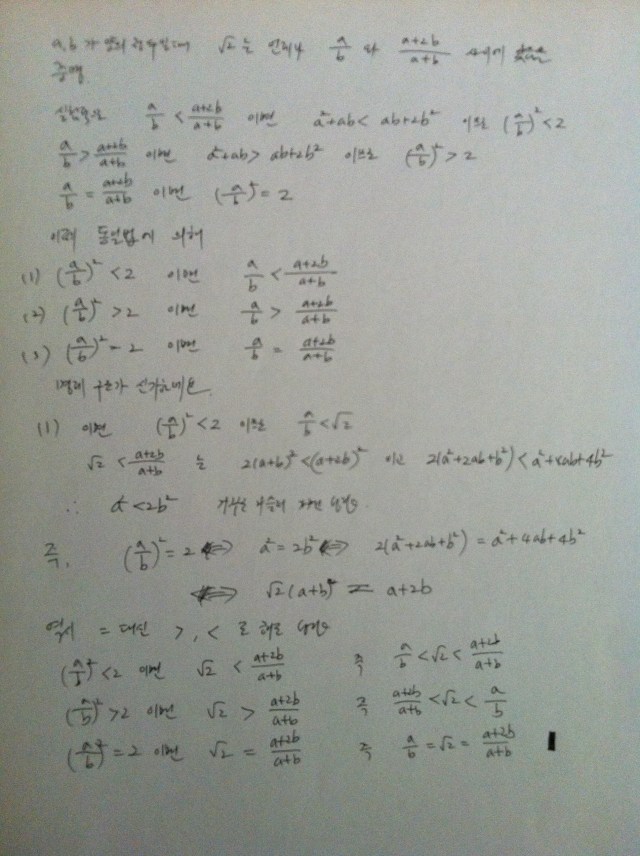 a, b 가 양의 정수일 때 √2 는 언제나 a/b 와 (a+2b)/(a+b) 사이에 있음을
증명
a/b < (a+2b)/(a+b) 이면 a²+ab < ab+2b² 이므로 (a/b)² < 2
a/b > (a+2b)/(a+b) 이면 a²+ab > ab+2b² 이므로 (a/b)² > 2
a/b = (a+2b)/(a+b) 이면 (a/b)² = 2
의해
(1) (a/b)² < 2 이면 a/b < (a+2b)/(a+b)
(2) (a/b)² > 2 이면 a/b > (a+2b)/(a+b)
(3) (a/b)² = 2 이면 a/b = (a+2b)/(a+b)
(1) 이면 (a/b)² < 2 이므로 a/b < √2
√2 < (a+2b)/(a+b) 는 2(a+b)² < (a+2b)² 이고 2(a²+2ab+b²) < a²+4ab+4b²
∴ a² < 2b²
즉, (a/b)² = 2 ⟺ a² = 2b² ⟺ 2(a²+2ab+b²) = a²+4ab+4b²
⟺ √2(a+b) = a+2b
역시 = 대신 >, < 로 해도
(a/b)² < 2 이면 √2 < (a+2b)/(a+b) 즉 a/b < √2 < (a+2b)/(a+b)
(a/b)² > 2 이면 √2 > (a+2b)/(a+b) 즉 (a+2b)/(a+b) < √2 < a/b
(a/b)² = 2 이면 √2 = (a+2b)/(a+b) 즉 a/b = √2 = (a+2b)/(a+b)